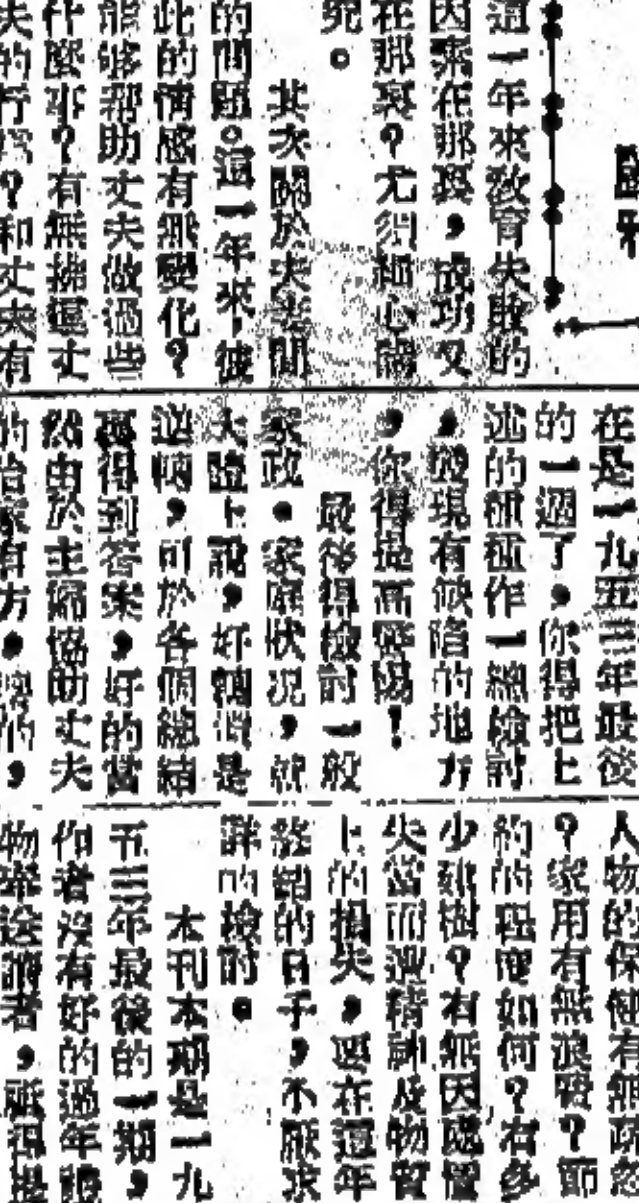 這一年來敎育失敗的
因素在那裏，成功又
在那裏？尤須細心
究。
其次關於夫妻間
的問題。這一年來，彼
此的情感有無變化？
能够帮助丈夫做過些
什麽事？有無拂逆丈
夫的行爲？和丈夫有
在是一九五三年最後
的一週了，你得把上
述的種種作一總檢討
，發現有缺陷的地方
，你得提高警惕！
最後得檢討一般
家政，家庭狀況，就
大體上說，好轉抑是
逆轉，可於各個總結
裏得到答案，好的當
然由於主婦協助丈夫
的治家有方，壞的，
人物的保健有無疏忽
？家用有無浪費？節
約的程度如何？有多
少建樹？有無因處置
失當而遭精神及物質
上的損失，要在這年
的日子，不厭求
詳的檢討。
本刊本期是一九
五三年最後的一期，
作者沒有好的過年禮
物奉送讀者，祇得